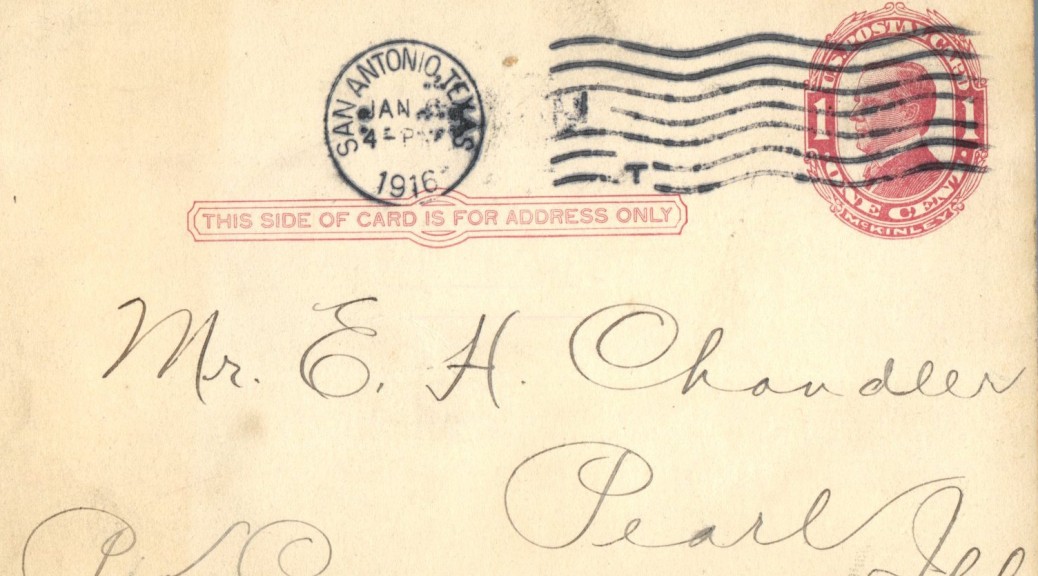 SAN ANTONIO, TEXAS
JAN
4 - P
1916
T
U.S. POSTAL CARD
1 1
ONE CENT
McKINLEY
THIS SIDE OF CARD IS FOR ADDRESS ONLY
Mr. E. H. Chandler
Pearl
Ill